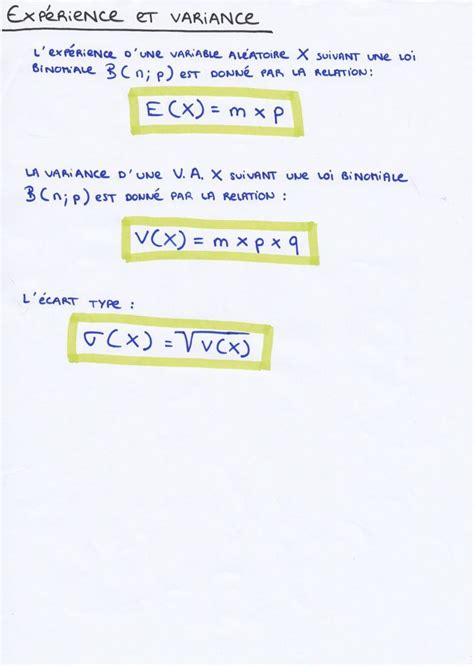 EXPÉRIENCE ET VARIANCE
L'EXPÉRIENCE D'UNE VARIABLE ALÉATOIRE X SUIVANT UNE LOI
BINOMIALE B(n;p) EST DONNÉ PAR LA RELATION:
E(X) = m x p
LA VARIANCE D'UNE V.A. X SUIVANT UNE LOI BINOMIALE
B(n;p) EST DONNÉ PAR LA RELATION :
V(X) = m x p x q
L'ÉCART TYPE :
σ(X) = √V(X)